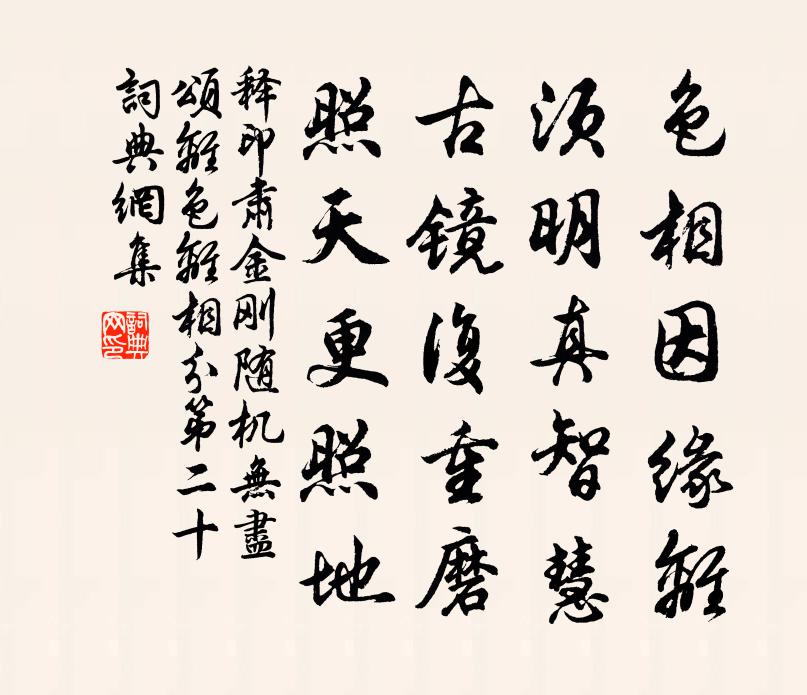 色相因缘離
須明真智慧
古镜復重磨
照天更照地
释印肅金刚随机無盡
頌離色離相分第二十
詞典網集
詞典网印